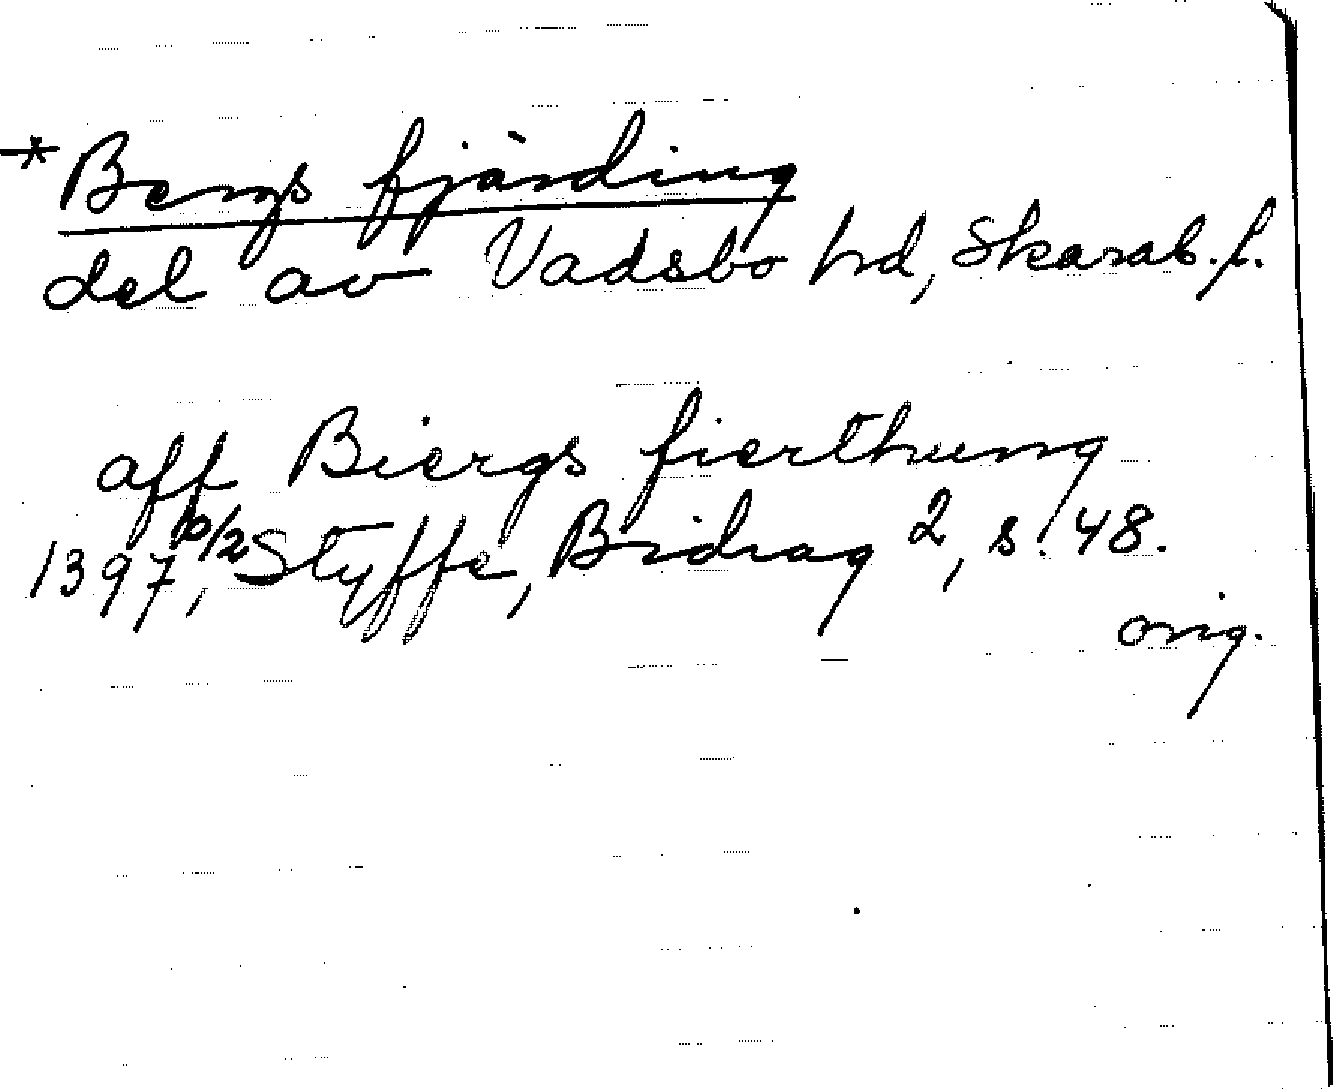 *Bergs fjärding
del av Vadsbo hd, Skarab. l.
aff Biergs fierthung
1397 10/2, Styffe, Bidrag 2, s. 48.
orig.